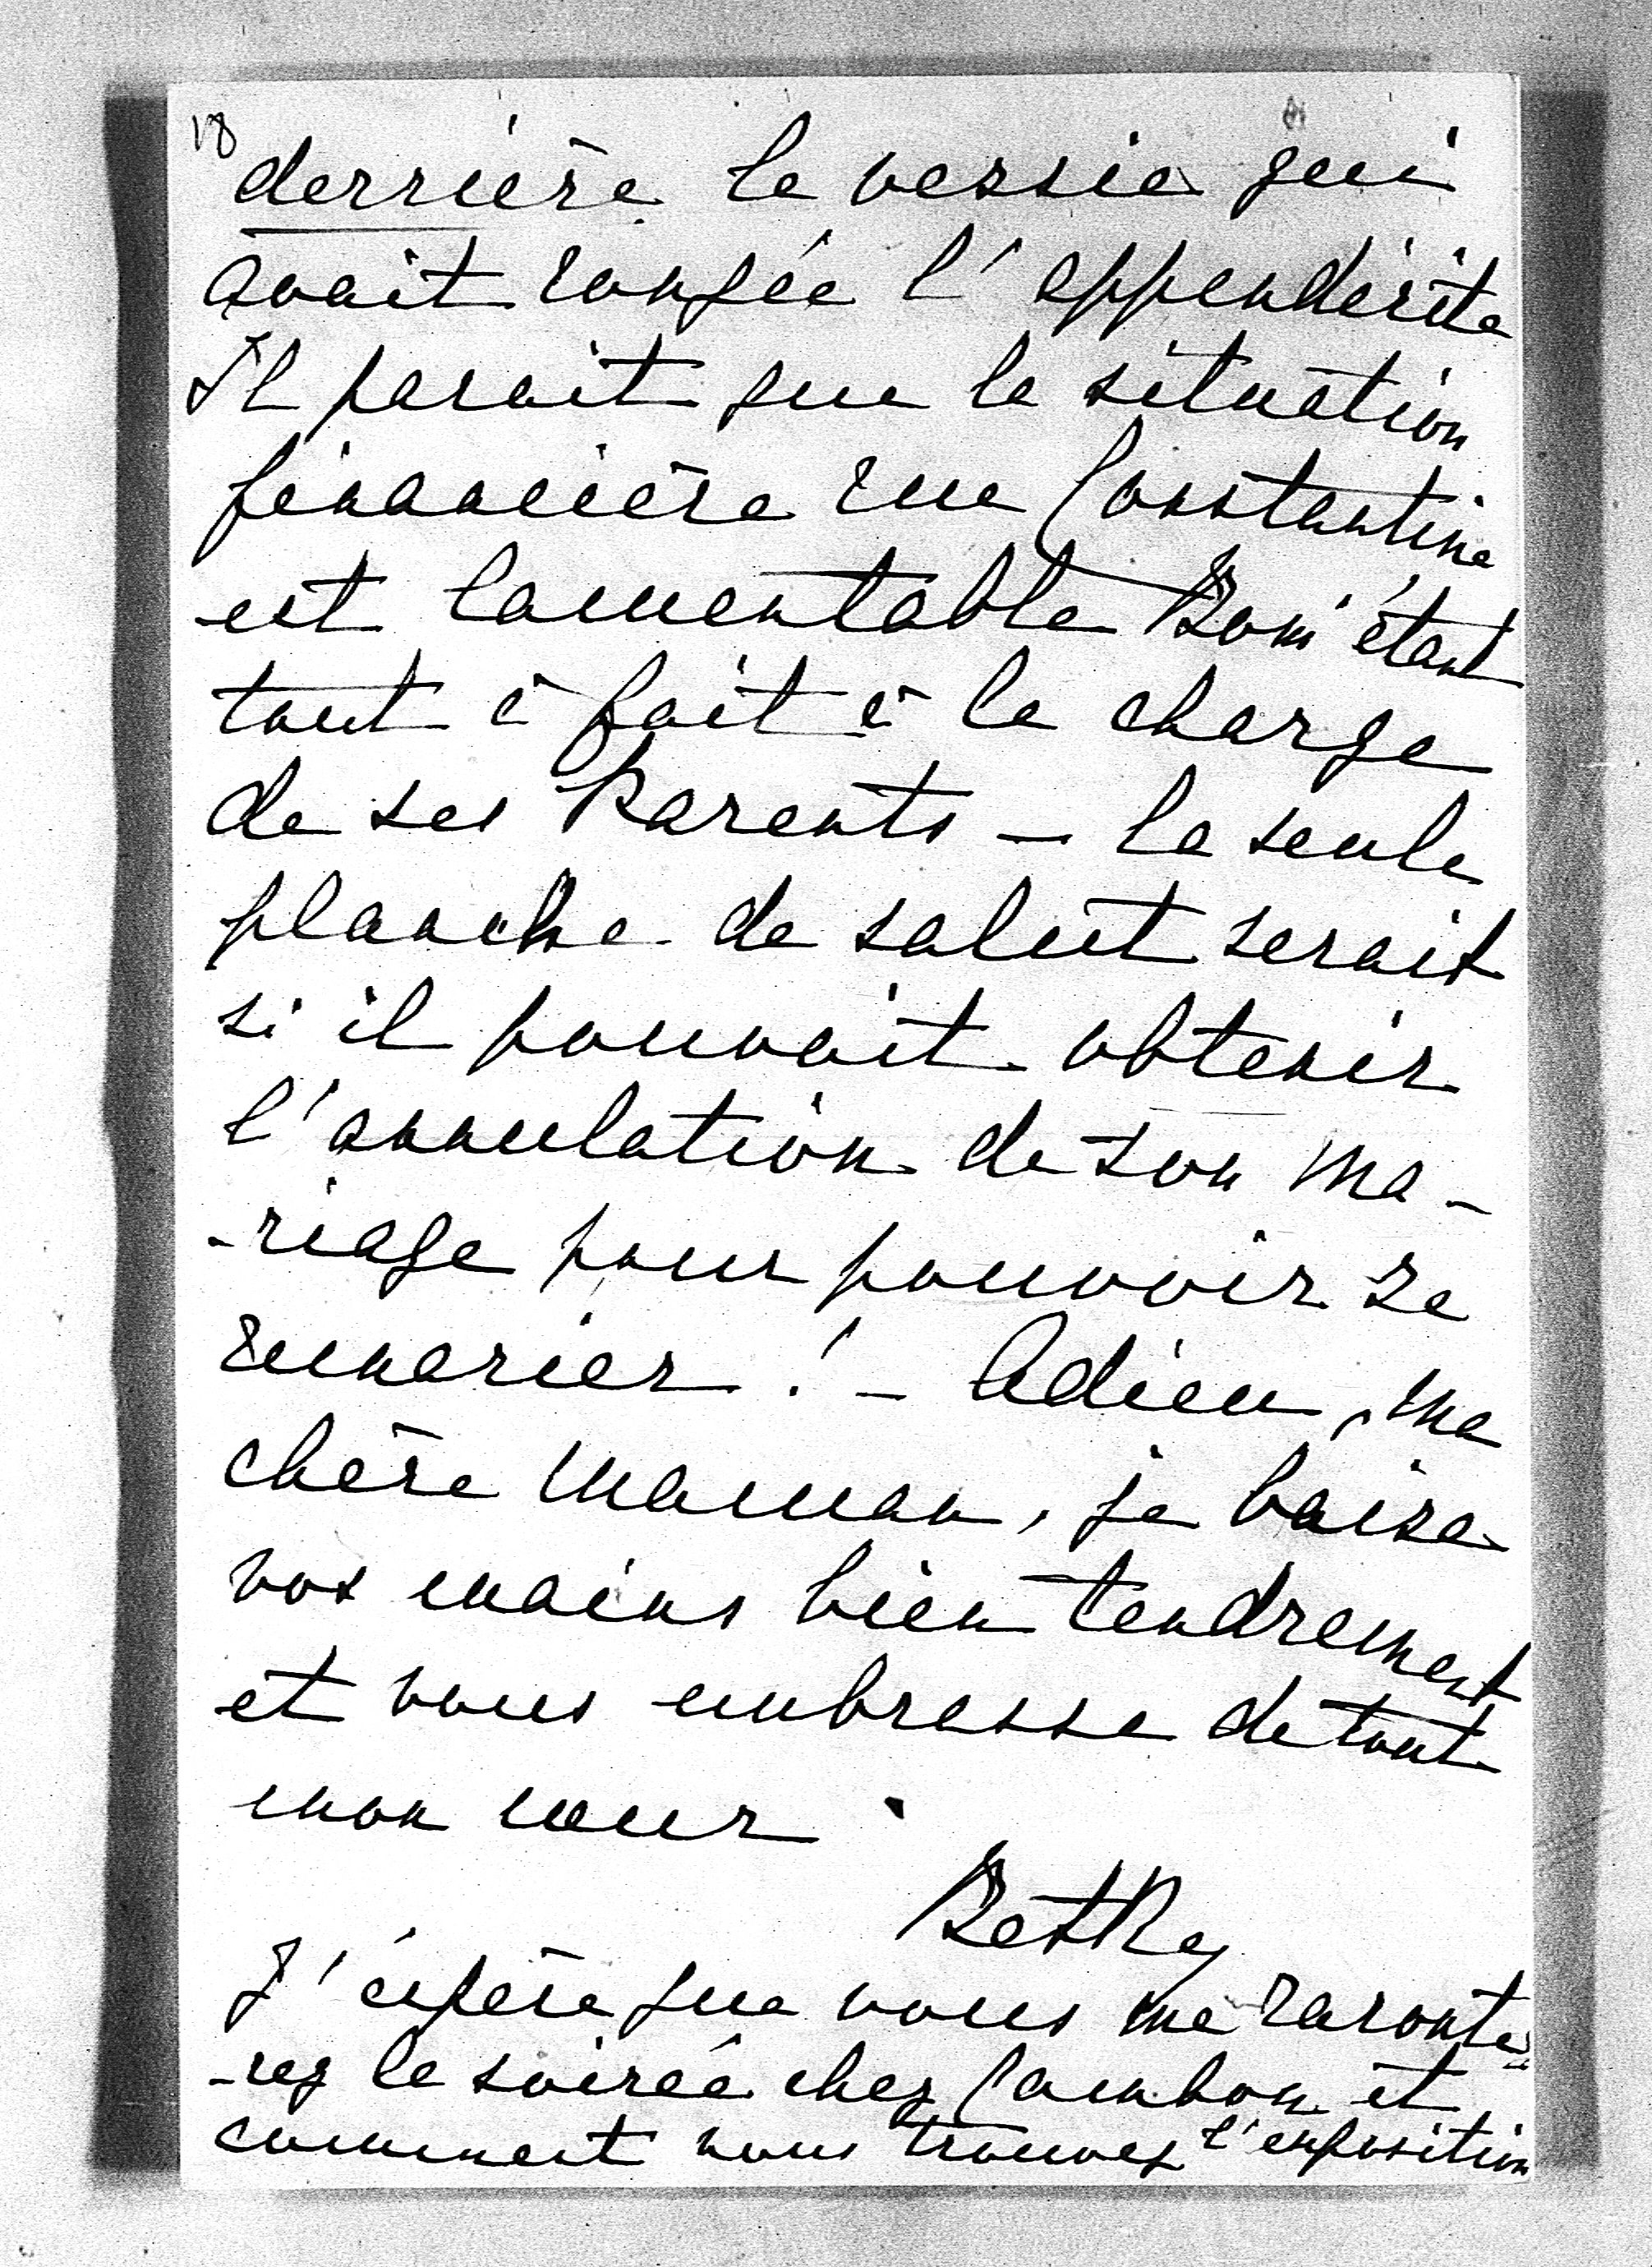 18
derrière la vessie qui
avait rongée l'appendicite
Il parait que la situation
financière rue Constantine
est lamentable Boni étant
tout à fait à la charge
de ses Parents – la seule
planche de salut serait
si il pouvait obtenir
l'annulation de son ma-
-riage pour pouvoir se
remarier ! – Adieu, ma
chère Maman, je baise
vos mains bien tendrement
et vous embrasse de tout
mon cœur.
Bethy
J'espère que vous me raconte-
-rez la soirée chez Cambon et
comment vous trouvez l'exposition